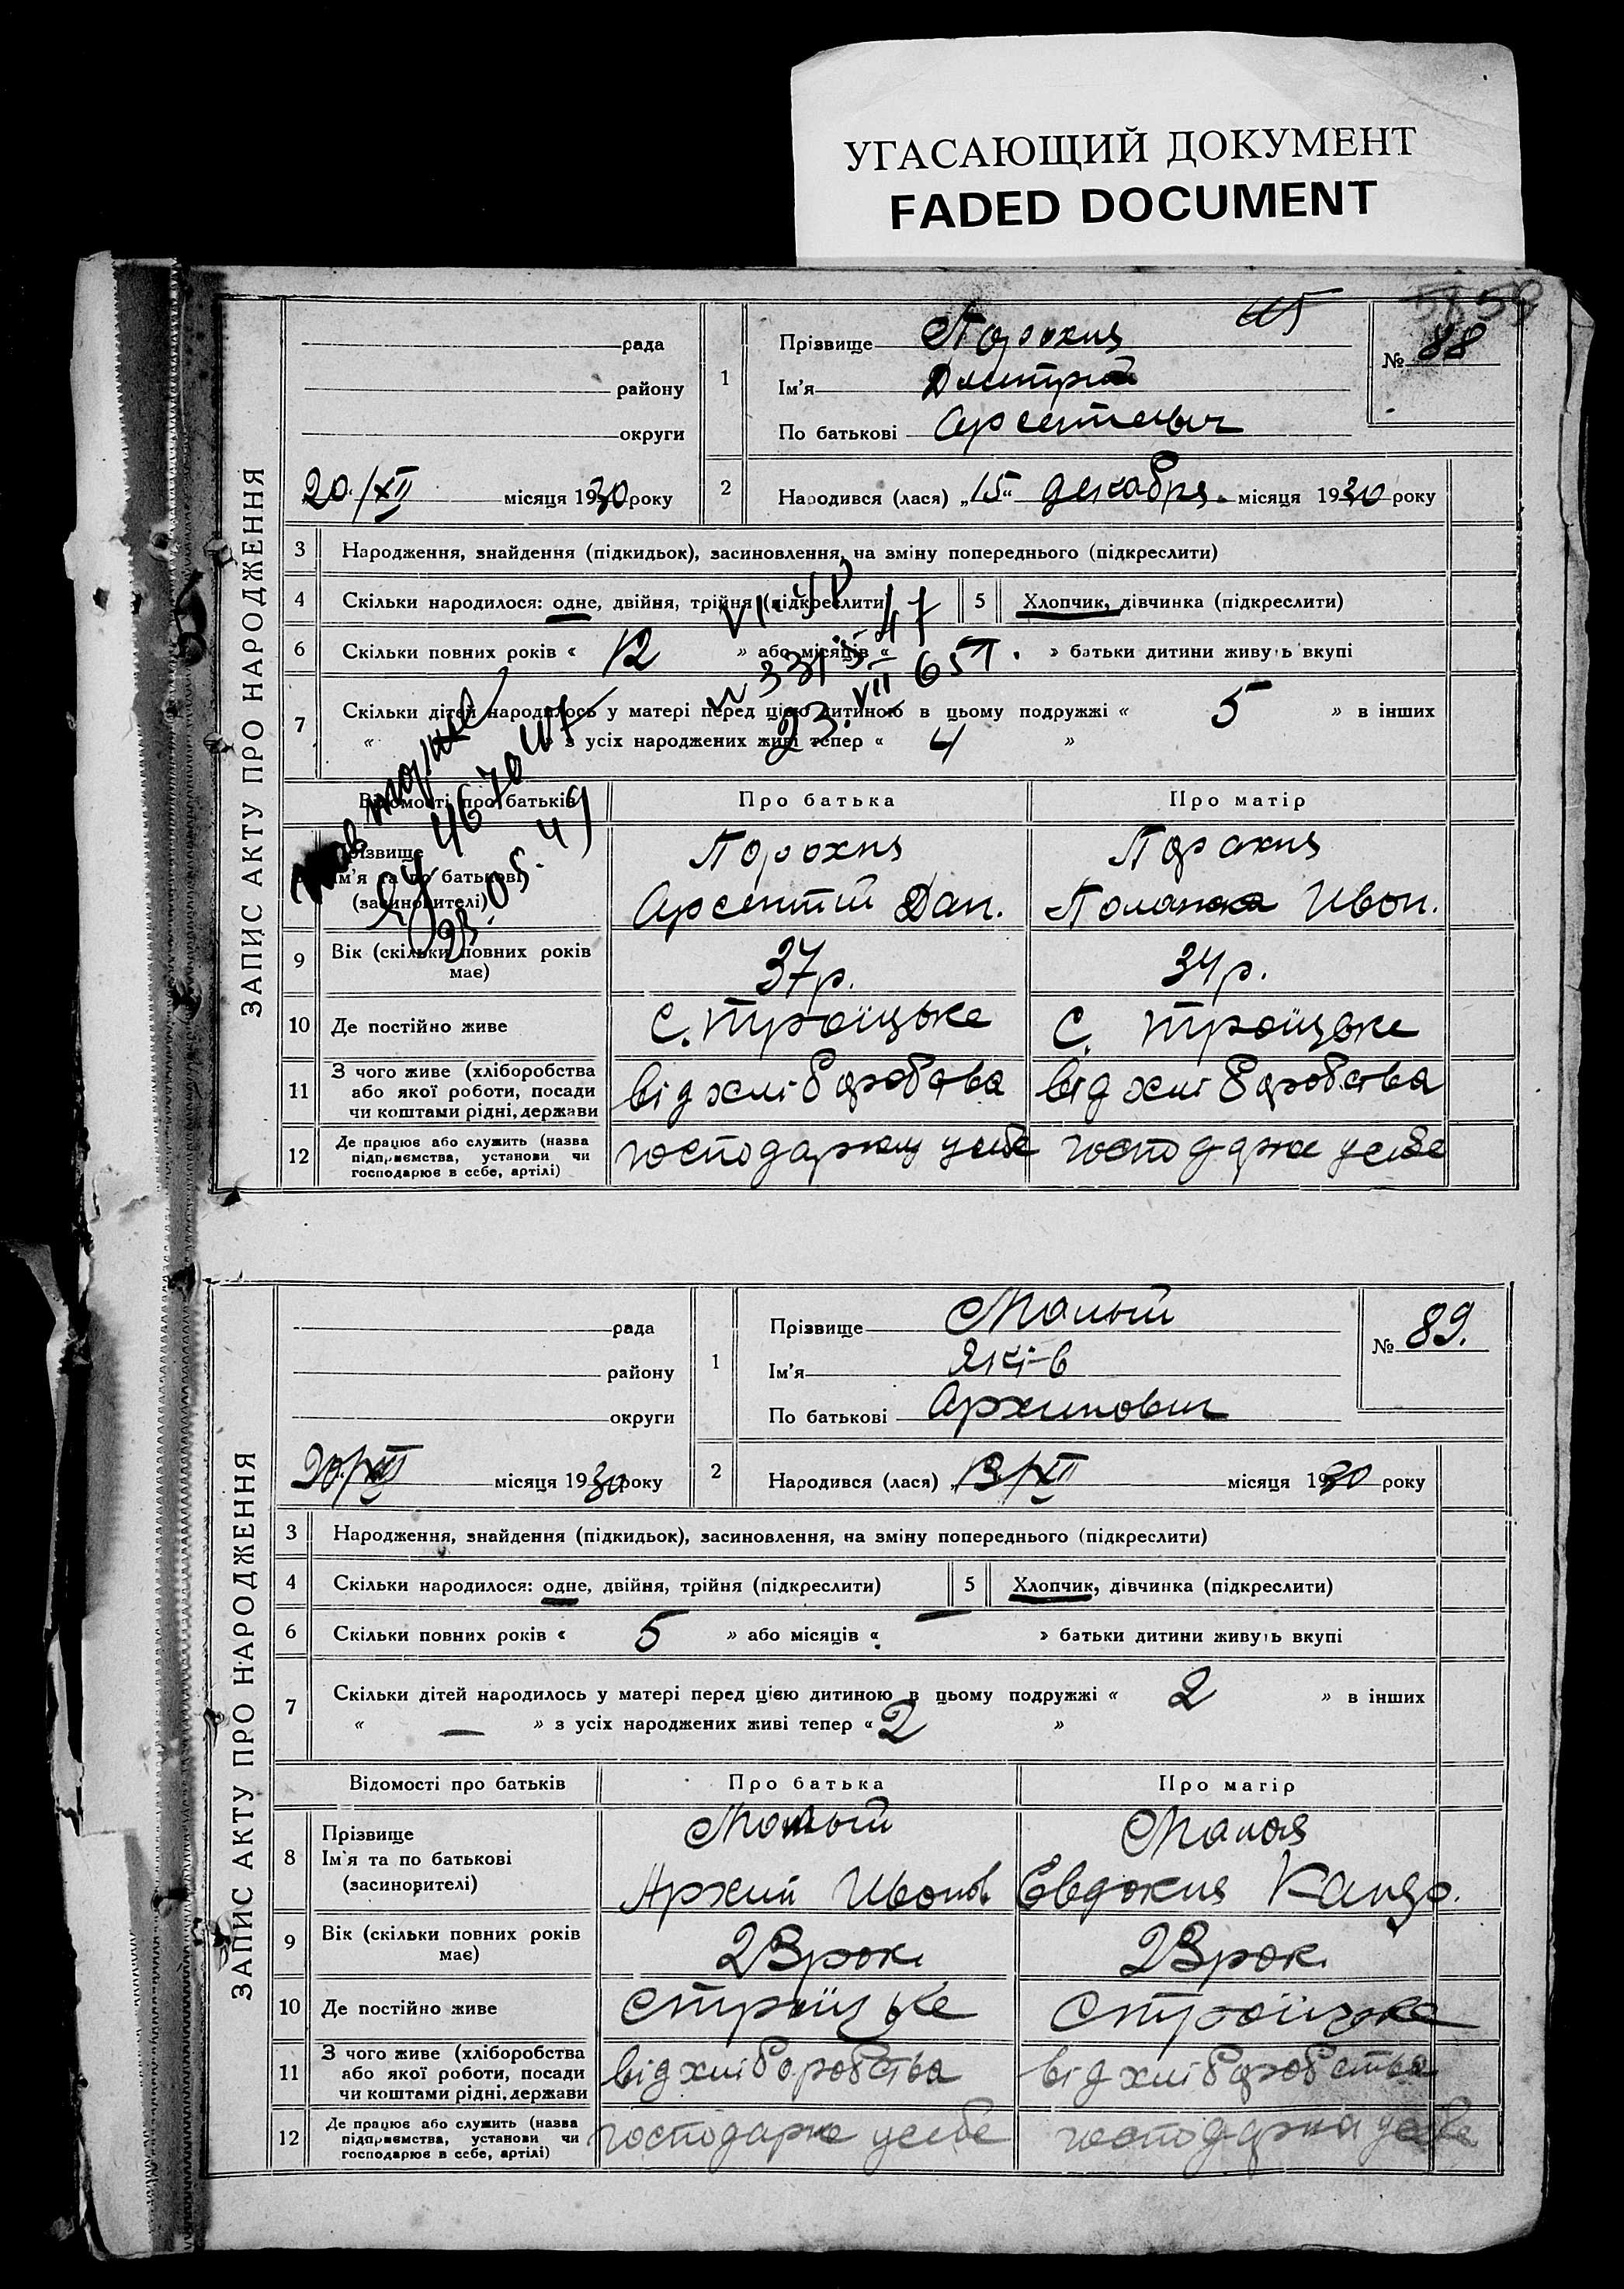 УГАСАЮЩИЙ ДОКУМЕНТ
FADED DOCUMENT
ЗАПИС АКТУ ПРО НАРОДЖЕННЯ
рада
району
округи
20/XII місяця 1930 року
1 Прізвище Порохня
Ім'я Дмитрий
По батькові Арсентиевич
№ 88
2 Народився (лася) „15“ декабря місяця 1930 року
3 Народження, знайдення (підкидьок), засиновлення, на зміну попереднього (підкреслити)
4 Скільки народилося: одне, двійня, трійня (підкреслити)
5 Хлопчик, дівчинка (підкреслити)
6 Скільки повних років « 12 » або місяців « » батьки дитини живуть вкупі
7 Скільки дітей народилось у матері перед цією дитиною в цьому подружжі « 5 » в інших
« » з усіх народжених живі тепер « 4 »
Відомості про батьків Про батька Про матір
Прізвище Порохня Порохня
Ім'я та по батькові Арсентий Дан. Ивон.
(засиновителі)
9 Вік (скільки повних років має) 37 р. 34 р.
10 Де постійно живе С. Троїцьке С. Троїцьке
11 З чого живе (хліборобства або якої роботи, посади чи коштами рідні, держави від хліборобства від хліборобства
12 Де працює або служить (назва підприємства, установи чи господарює в себе, артілі) господарює у себе господарює у себе
ЗАПИС АКТУ ПРО НАРОДЖЕННЯ
рада
району
округи
20/XII місяця 1930 року
1 Прізвище Малый
Ім'я Яків
По батькові Архипович
№ 89.
2 Народився (лася) „13/XII місяця 1930 року
3 Народження, знайдення (підкидьок), засиновлення, на зміну попереднього (підкреслити)
4 Скільки народилося: одне, двійня, трійня (підкреслити)
5 Хлопчик, дівчинка (підкреслити)
6 Скільки повних років « 5 » або місяців « — » батьки дитини живуть вкупі
7 Скільки дітей народилось у матері перед цією дитиною в цьому подружжі « 2 » в інших
« — » з усіх народжених живі тепер « 2 »
Відомості про батьків Про батька Про матір
8 Прізвище Малый Малая
Ім'я та по батькові Архип Ивонов Евдокия
(засиновителі)
9 Вік (скільки повних років має) 23 рок. 23 рок.
10 Де постійно живе С Троїцьке С Троїцьке
11 З чого живе (хліборобства або якої роботи, посади чи коштами рідні, держави від хліборобства від хліборобства
12 Де працює або служить (назва підприємства, установи чи господарює в себе, артілі) господарює у себе у себе